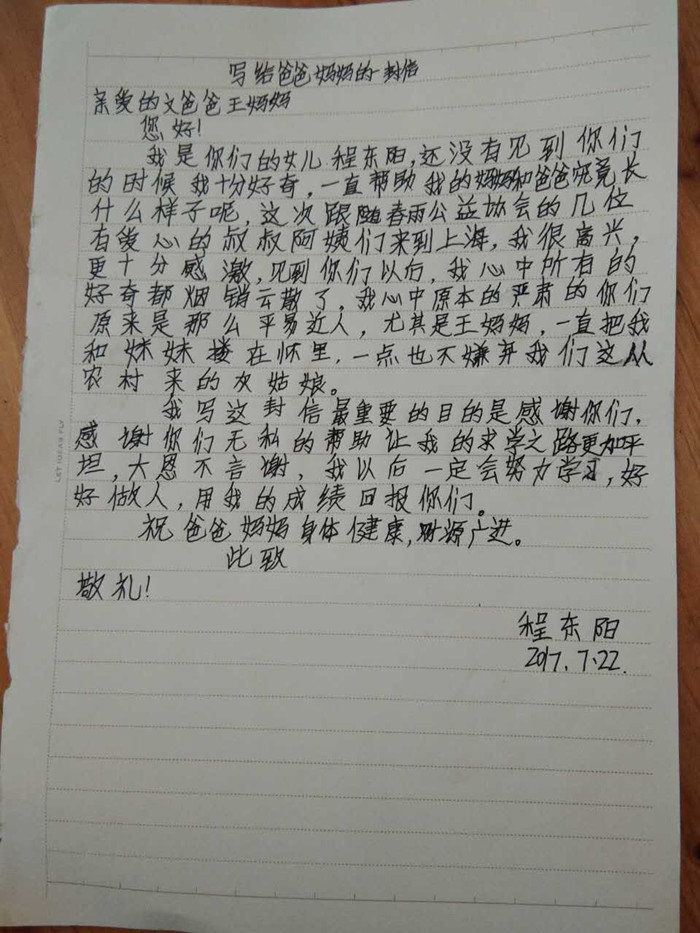 写给爸爸妈妈的一封信
亲爱的文爸爸王妈妈
您好!
我是你们的女儿程东阳,还没有见到你们
的时候我十分好奇,一直帮助我的妈妈和爸爸究竟长
什么样子呢,这次跟随春雨公益协会的几位
有爱心的叔叔阿姨们来到上海,我很高兴,
更十分感激,见到你们以后,我心中所有的
好奇都烟销云散了。我心中原本的严肃的你们
原来是那么平易近人,尤其是王妈妈,一直把我
和妹妹搂在怀里,一点也不嫌弃我们这从
农村来的女姑娘。
我写这封信最重要的目的是感谢你们,
感谢你们无私的帮助让我的求学之路更加平
坦,大恩不言谢,我以后一定会努力学习,好
好做人,用我的成绩回报你们。
祝爸爸妈妈身体健康,财源广进。
此致
敬礼!
程东阳
2017.7.22.